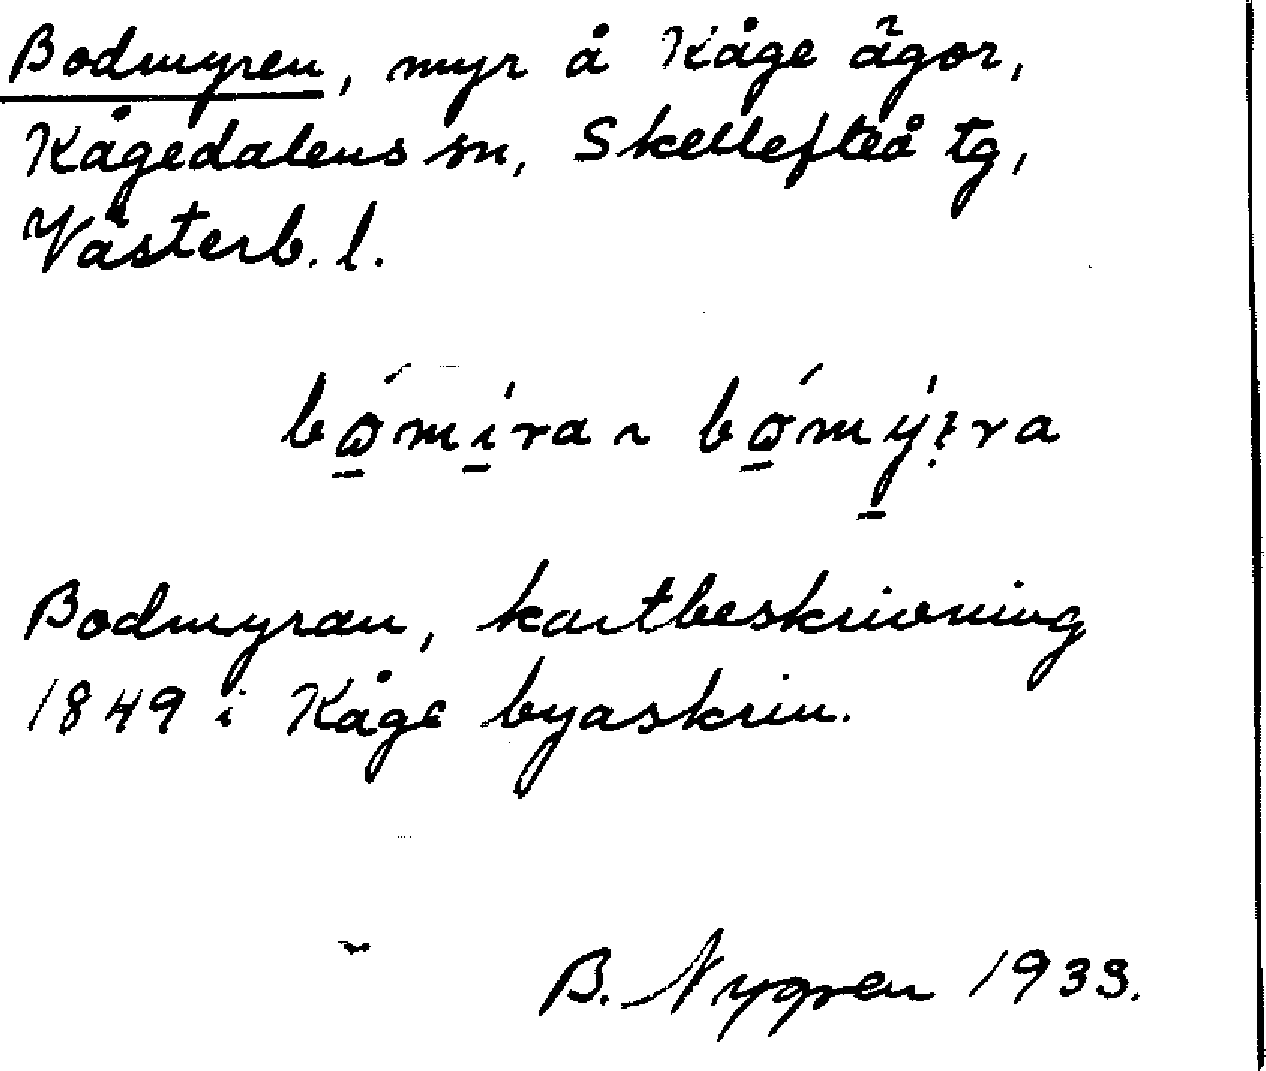 Bodmyren, myr å Kåge ägor,
Kågedalens sn, Skellefteå tg,
Västerb. l.
Bodmyran, kartbeskrivning
1849 i Kåge byaskrin.
B. Nygren 1933.